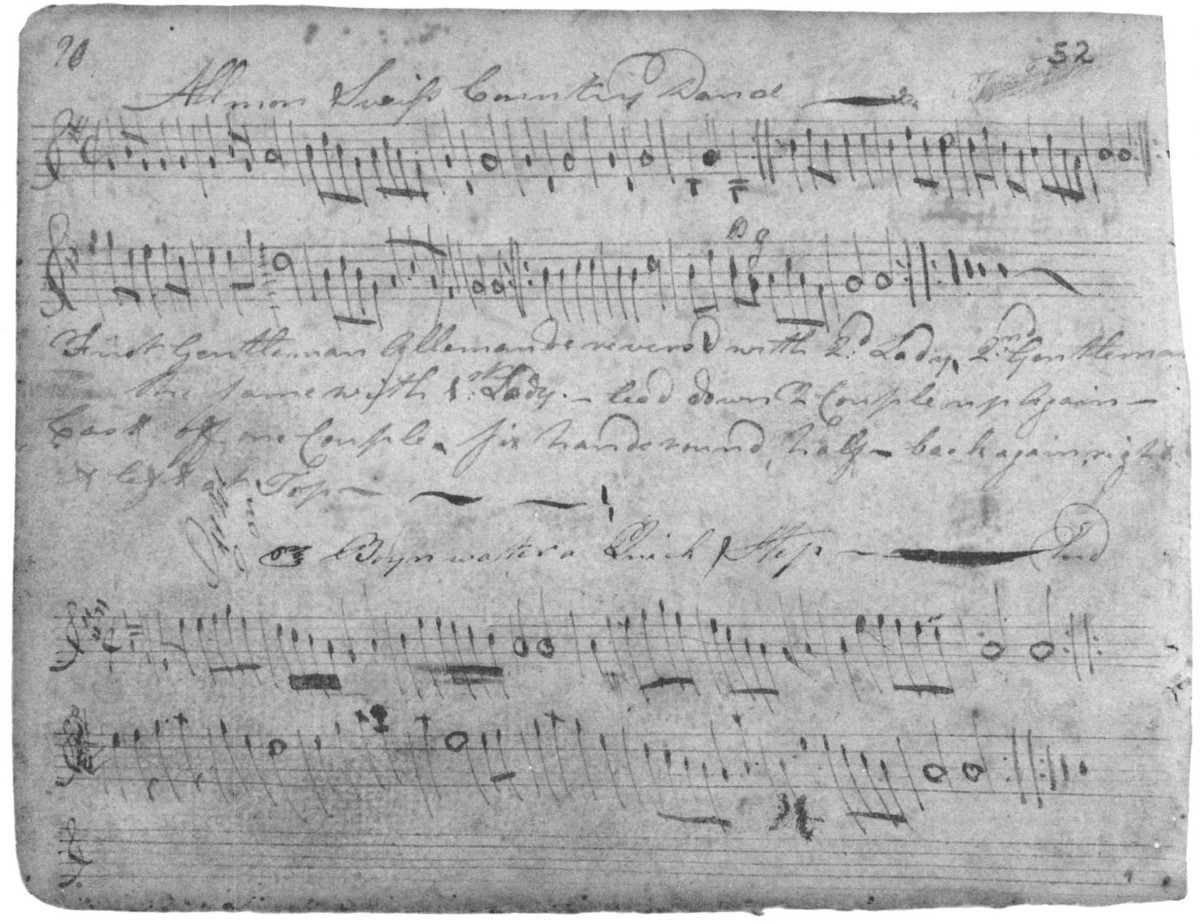 52
Allmon Swiss Country Dance
First Gentleman Allemande revers'd with 2d Lady, 2nd Gentleman
the same with 1st Lady. – lead down 2 Couple up Again –
Cast off one Couple. six hands round, half – back again, right
& left at Top –
or Quick Step –